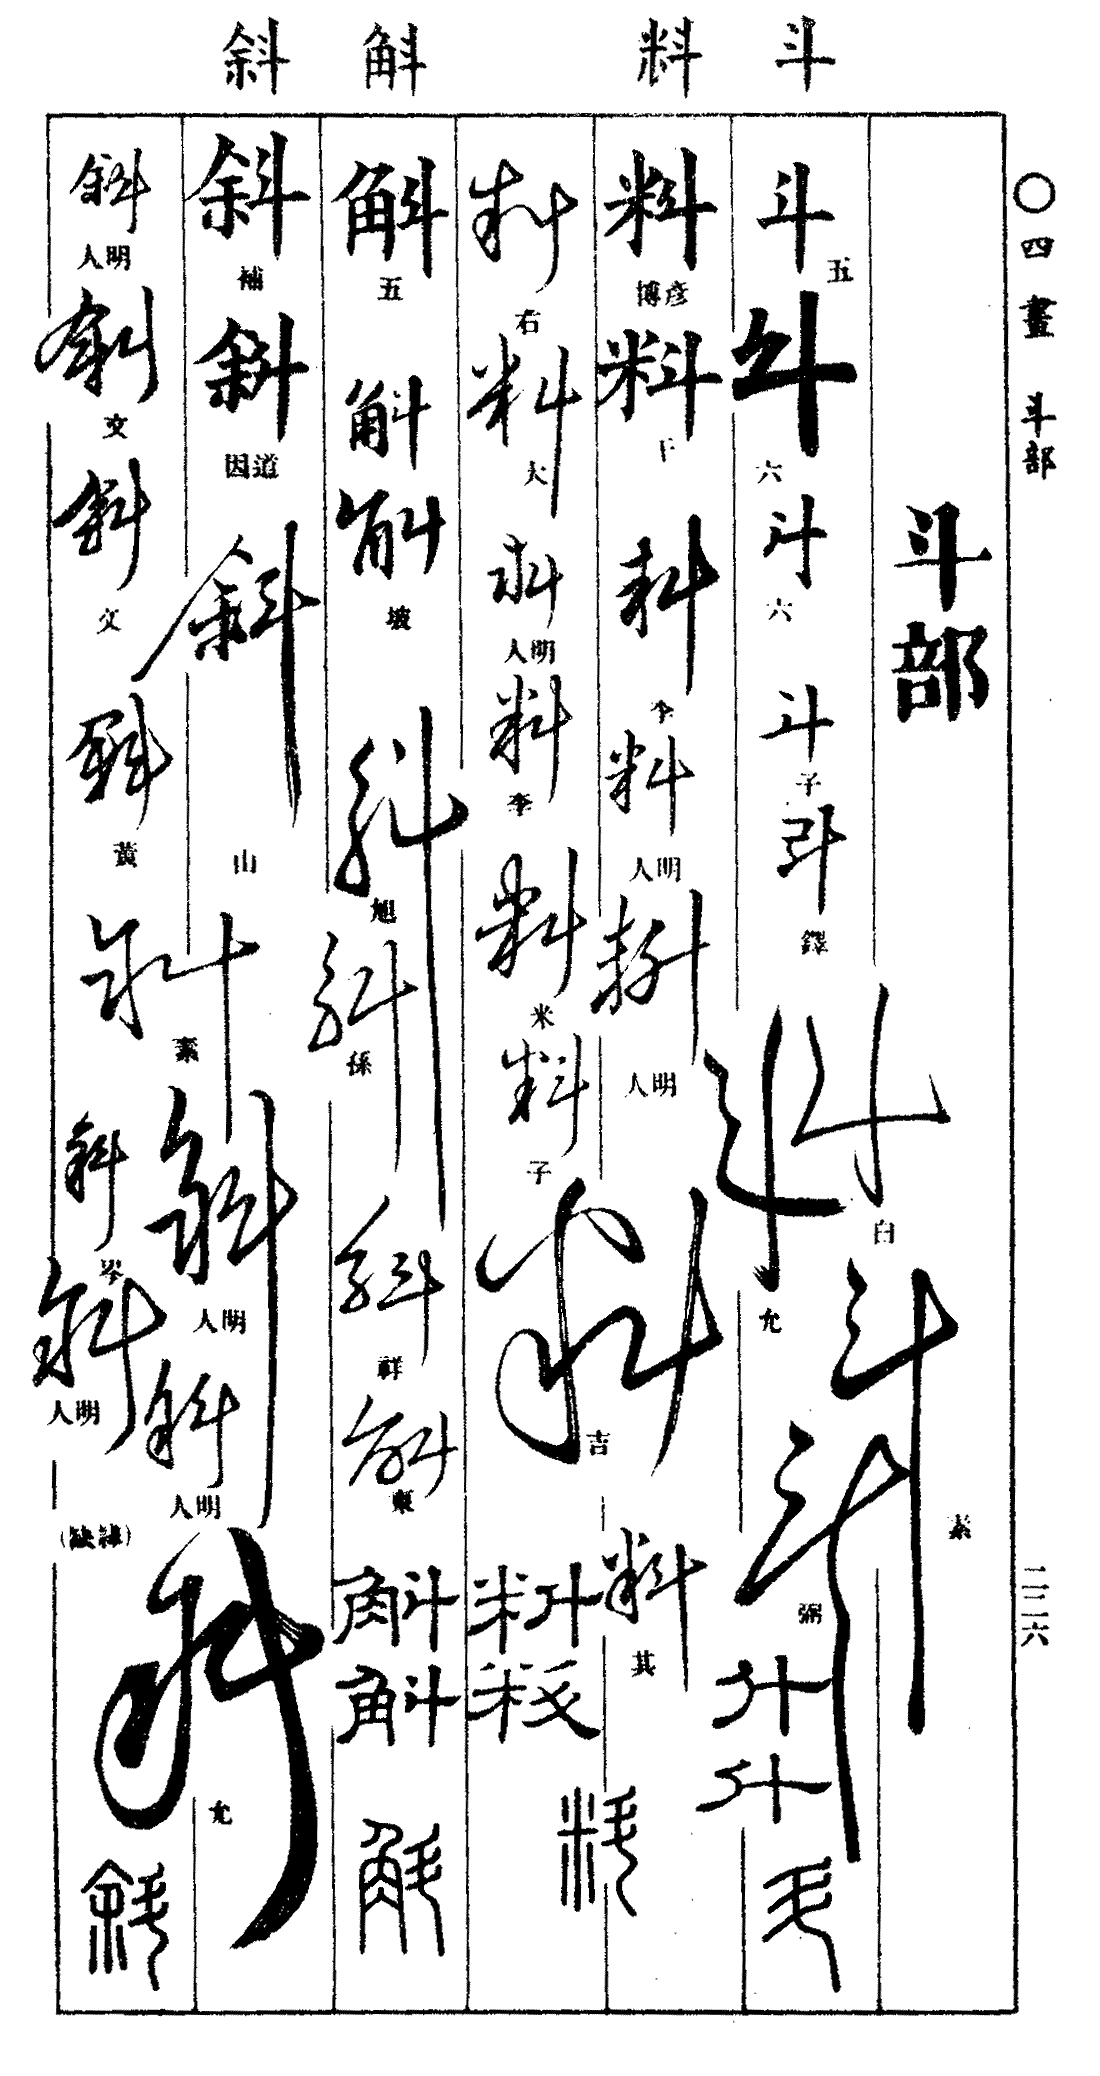 斗 料 斛 斜
〇四畫 斗部
二二六
斗部
斗 五 斗 六 斗 六 斗 子 斗 鐸 斗 白 斗 允 斗 素 斗 弼 斗 斗 斗
料 彦博 料 料 李 料 明人 料 明人 料 其
料 右 料 大 料 明人 料 李 料 米 料 子 料 吉 料 料 料
斛 五 斛 斛 坡 斛 旭 斛 孫 斛 祥 斛 東 斛 斛 斛
斜 補 斜 道因 斜 山 斜 素 斜 明人 斜 明人 斜 允
斜 明人 斜 文 斜 文 斜 黃 斜 岑 斜 明人 (隷缺) 斜